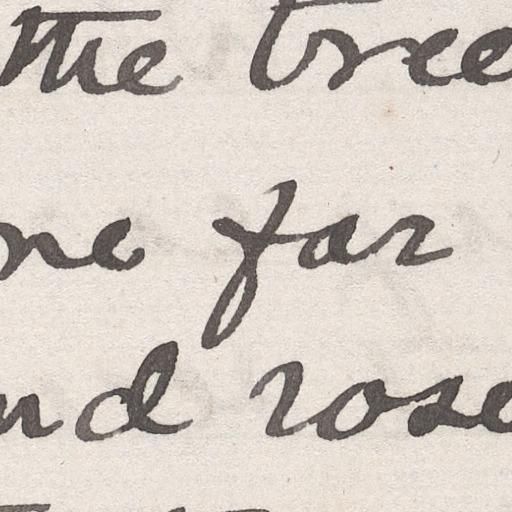 the tree
ne far
nd rose